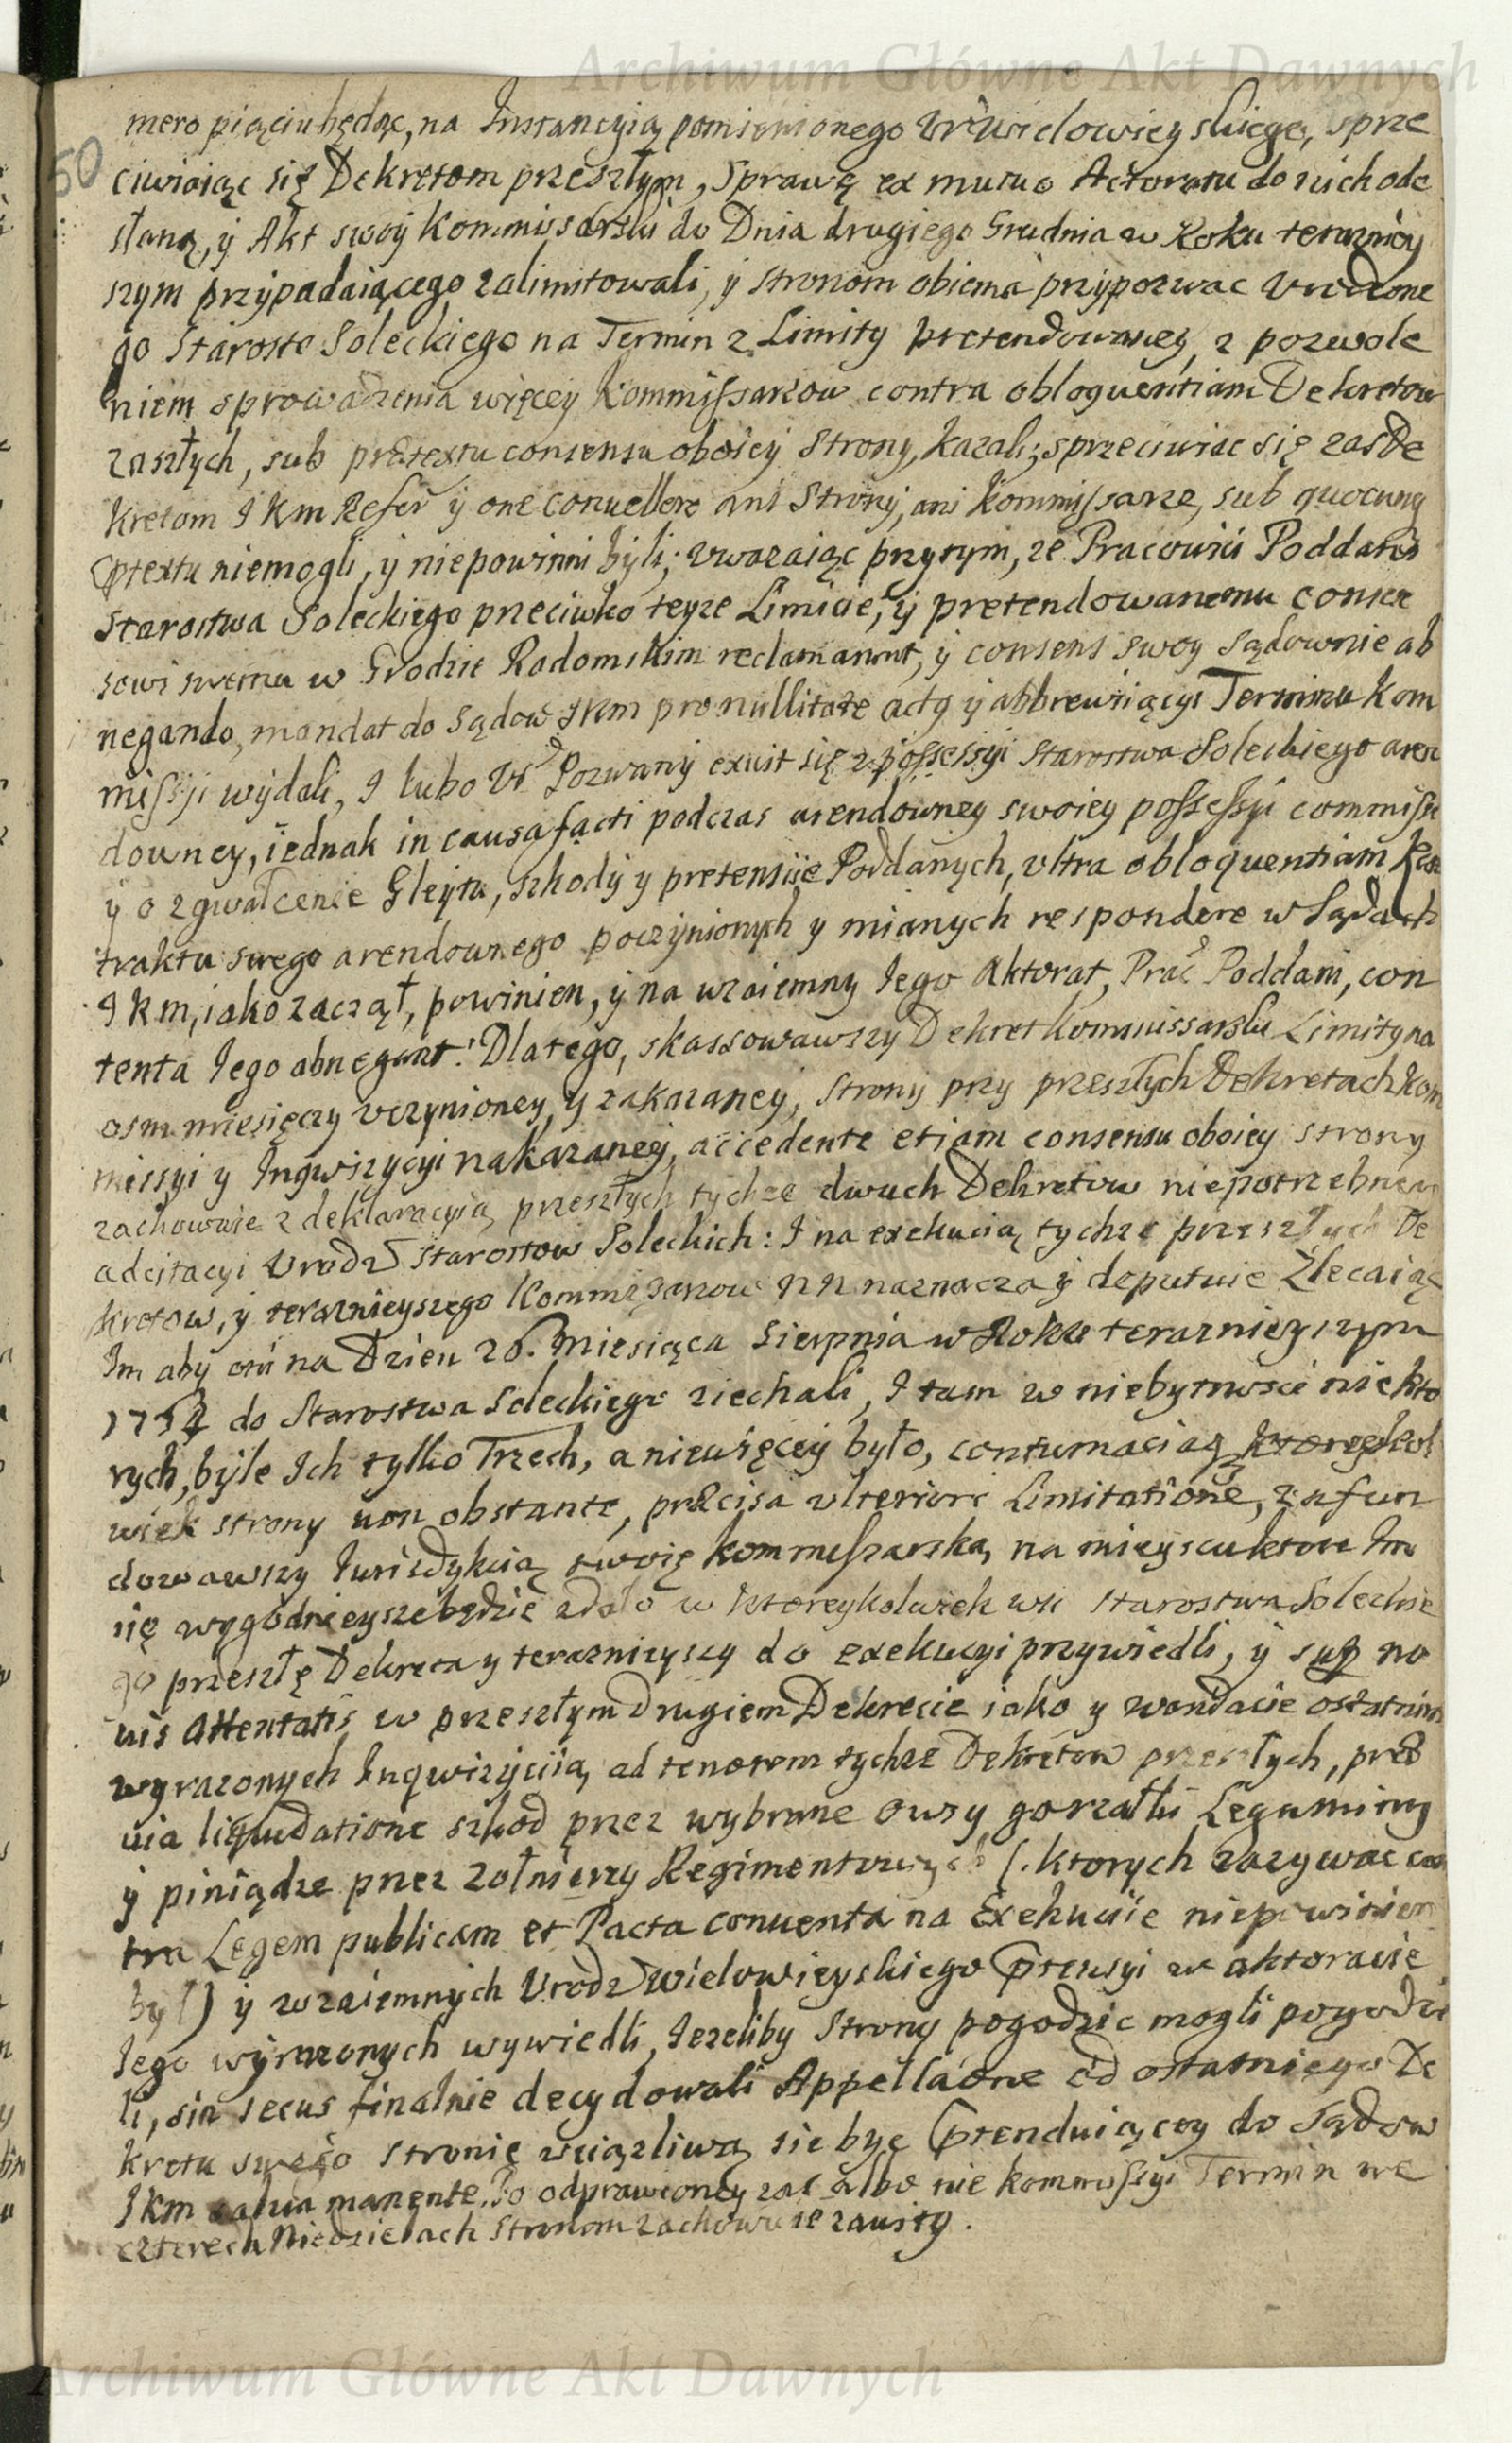 Archiwum Główne Akt Dawnych
50
mero piąciu będąc, na Instancyią pomienionego Ur Wielowieyskiego, sprze
ciwiaiąc się Dekretom przeszłym, Sprawę ex mutuo Actoratu do nich ode
słaną, y Akt swoy Kommissarski do Dnia drugiego Grudnia w Roku teraźniey
szym przypadaiącego zalimitowali, y stronom obiema przypozwac Urodzone
go Starostę Soleckiego na Termin z Limity pretendowaney, z pozwole
niem sprowadzenia więcey Kommissarzow contra obloquentiam Dekretow
zaszłych, sub prætextu consensu oboiey Strony, kazali; sprzeciwiac się zas De
kretom J K m Refer y one convellere ani Strony, ani Kommissarze, sub quocunq
ptextu niemogli, y niepowinni byli; uwazaiąc przytym, ze Pracowici Poddani
Starostwa Soleckiego przeciwko teyze Limicie, y pretendowanemu consen
sowi swemu w Grodzie Radomskim reclamarunt, y consens swoy Sądownie ab
negando, mandat do Sądow JKm pro nullitate acty y abbrewiącyi Terminu Kom
missyi wydali, I lubo Ur Pozwany exuit się z possessyi Starostwa Soleckiego aren
downey, iednak in causa facti podczas arendowney swoiey possessyi commissi
y o zgwałcenie Gleytu, szkody y pretensiie Poddanych, ultra obloquentiam Kon
traktu swego arendownego poczynionych y mianych respondere w Sądach
J K m, iako zaczął, powinien, y na wzaiemny Jego Aktorat, Prac Poddani, con
tenta Jego abnegant: Dlatego, skassowawszy Dekret Kommissarski Limity na
osm miesięczy uczynioney, y zakazaney, Strony przy przeszłych Dekretach Kom
missyi y Inqwizycyi nakazaney, accedente etiam consensu oboiey strony
zachowuie z deklaracyią przeszłych tychze dwuch Dekretow niepotrzebney
adcitacyi Urodz Starostow Soleckich: I na exekucią tychze przeszłych De
kretow, y teraznieyszego Kommissarzow NN naznacza y deputuie Zlecaiąc
Im aby oni na Dzien 26. Miesiąca Sierpnia w Roku teraznieyszym
1754 do Starostwa Soleckiego ziechali, I tam w niebytnosci niekto
rych, byle Ich tylko Trzech, a niewięcey było, contumacią ktoreykol
wiek strony non obstante, præcisa ulteriori Limitatione, zafun
dowawszy Jurisdykcią swoię kommissarską, na mieyscu ktore Im
się wygodnieysze będzie zdało w ktoreykolwiek wsi Starostwa Soleckie
go przeszłe Dekreta y teraznieyszy do exekucyi przywiedli, y sup no
vis Attentatis w przeszłym Drugiem Dekrecie iako y mandacie ostatnim
wyrazonych Inqwizyciią, ad tenorem tychze Dekretow przeszłych, præ
via liquidatione szkod przez wybrane owsy gorzałki Legumin
y piniądze przez zołnierzy Regimentowych (. ktorych zazywac con
tra Legem publicam et Pacta conventa na Exekuciie niepowinien
był) y wzaiemnych Urodz Wielowieyskiego ptensyi w aktoracie
Jego wyrazonych wywiedli, Jezeliby Strony pogodzic mogli pogodzi
li, sin secus finalnie decydowali Appellaone od ostatniego De
kretu swego stronie uciązliwą się byc ptenduiącey do Sądow
J K m salva manente. Po odprawioney zas albo nie kommissyi Termin we
czterech Niedzielach Stronom zachowuie zawity.
Archiwum Główne Akt Dawnych